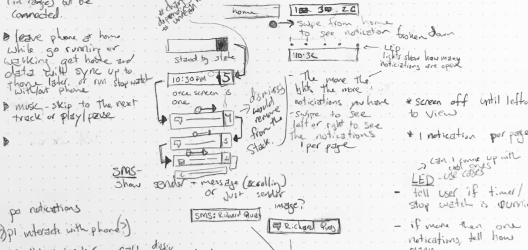 connected.
leave phone @ home
while go running or
walking get home and
data will sync up to
phone later. or run stop watch
without phone
music - skip to the next
track or play/pause
SMS-
show sender + message (scrolling)
or just sender
image?
SMS: Richard
Richard
no notifications
interacts with phone?)
stand by state
10:30 AM 5
once screen is
one
dismissing
would
remove
from the
stack.
home
swipe from home
to see notication
broken down
LED
lights show how many
notications are open
The more the
lights the more
noticiations you have
- swipe to see
left or right to see
the notications
1 per page
* screen off until
to view
* 1 notication per page
can I come up with
use cases
LED
- tell user if timer/
stop watch is running
- if more than one
notications, tell how